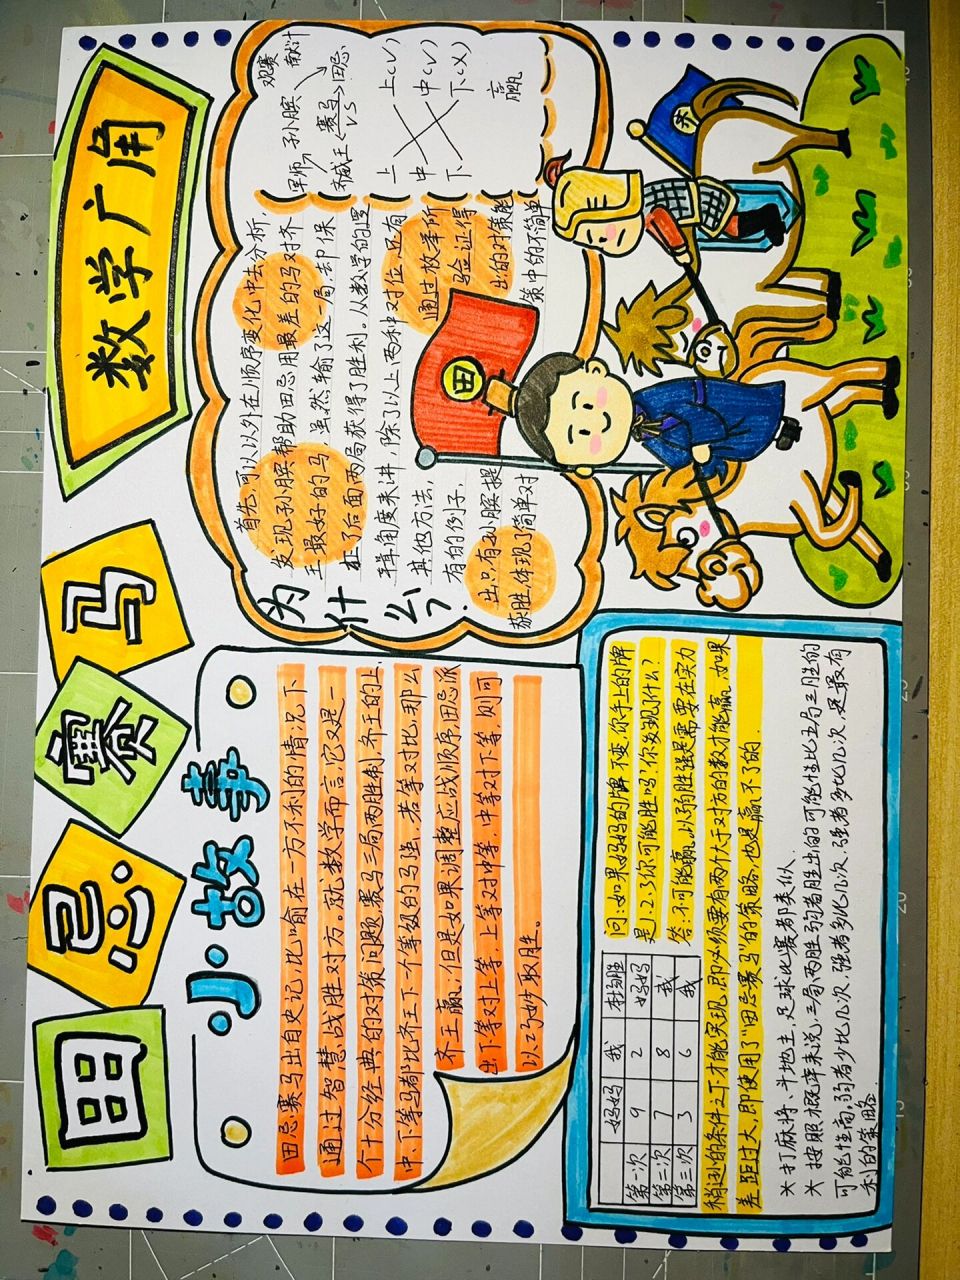 田忌赛马
数学广角
小故事
田忌赛马出自史记,比喻在一方不利的情况下
通过智慧,战胜对方。就数学而言,它又是一
个十分经典的对策问题,赛马三局两胜制,齐王的上、
中、下等马都比齐王下一个等级的马强,若等对比,那么
齐王赢,但是如果调整应战顺序,田忌派
出下等对上等,上等对中等,中等对下等,则可
以巧妙取胜。
为什么?
首先,可以以外在顺序变化中去分析,
发现孙膑帮助田忌用最差的马对齐
王最好的马,虽然输了这一局,却保
住了后面两局获得了胜利。从数学的逻
辑角度来讲,除了以上两种对位,还有
其他方法,通过枚举所
有的例子,验证得
出只有孙膑提出的对策能
获胜,体现了简单对策中的不简单
观赛 献计
军师 孙膑 田忌
齐威王 赛马 VS
上 上(√)
中 中(√)
下 下(X)
赢
田
齐
妈妈 我 本场胜
第一次 9 2 妈妈
第二次 7 8 我
第三次 3 6 我
问:如果妈妈的牌不变,你手上的牌
是1.2.3你可能胜吗?你发现了什么?
答:不可能赢,以弱胜强是需要在实力
稍逊的条件之下才能实现,即必须要有两个大于对方的数才能赢,如果
差距过大,即使用了"田忌赛马"的策略,也是赢不了的.
*打麻将、斗地主,足球比赛都类似.
*按照概率来说,三局两胜弱者胜出的可能性比五局三胜的
可能性高,弱者少比几次,强者多比几次,强者多比几次,是最有
利的策略.